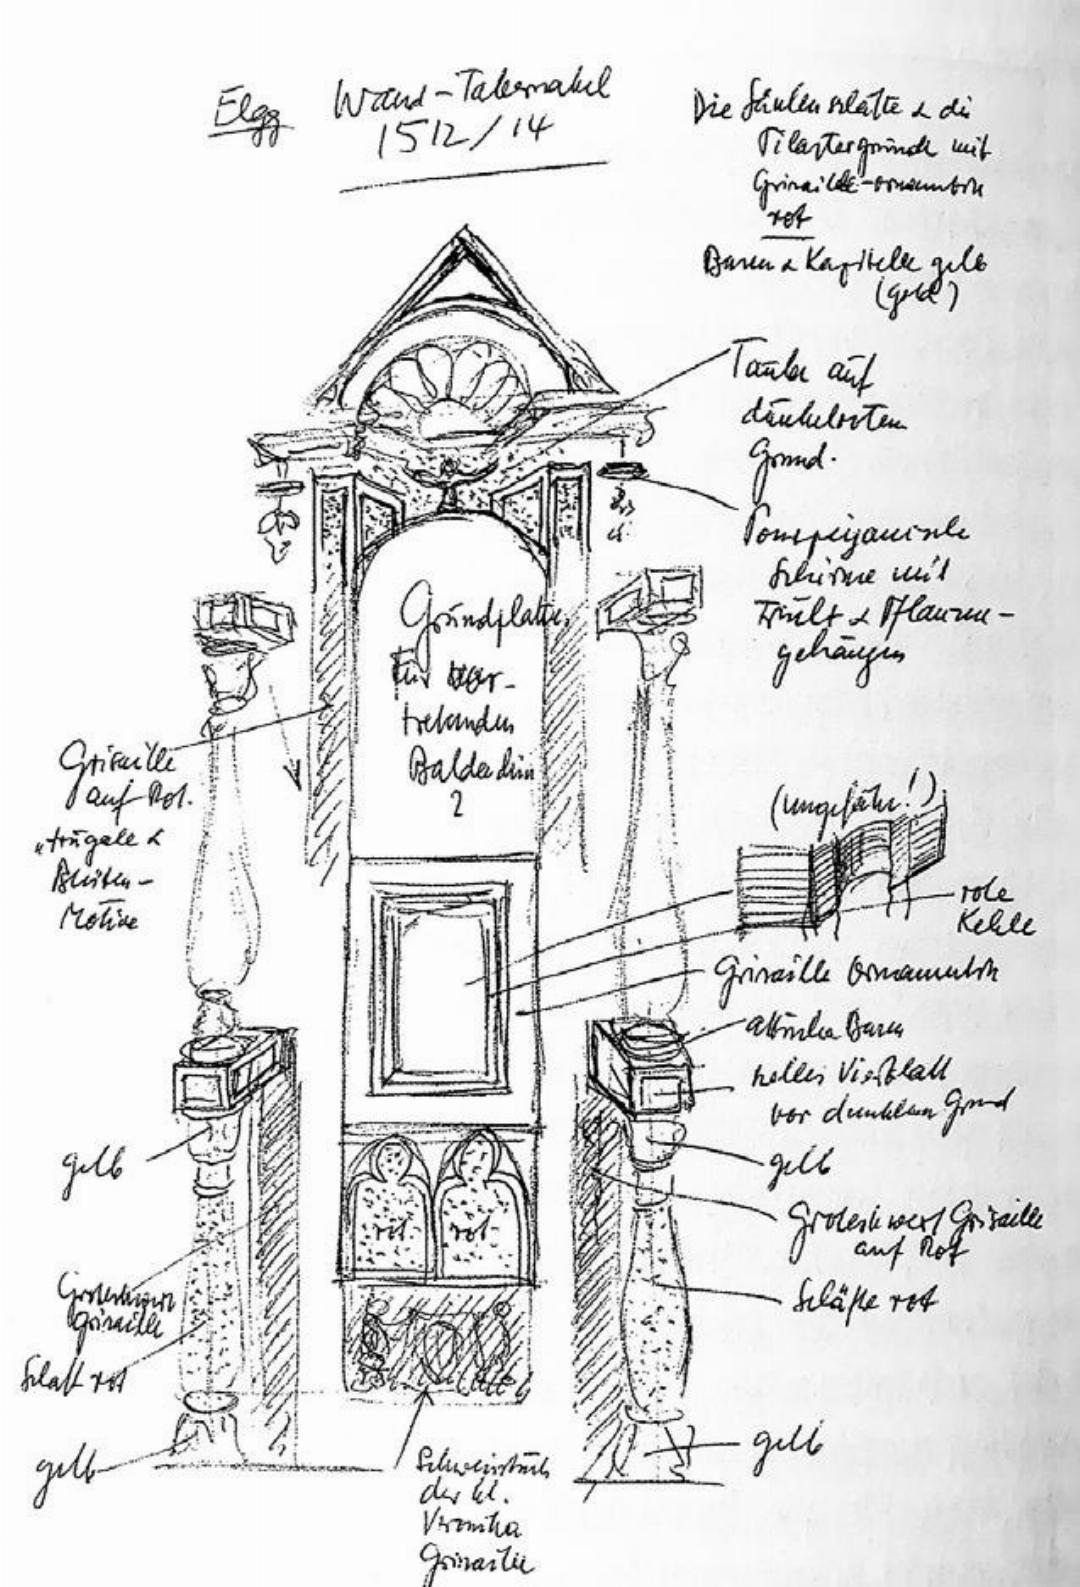 Elgg Wand-Tabernakel
1512/14
Die Säulenschäfte & die
Pilastergründe mit
Grisaille-ornamenten
rot
Basen & Kapitelle gelb
(Gold)
Taube auf
dunkelrotem
Grund.
Pompejanische
Schirme mit
Frucht & Pflanzen-
gehängen
Grundplatte
für vor-
tretenden
Baldachin
?
Grisaille
auf Rot.
Blüten-
Motive
(ungefähr!)
rote
Kehle
Grisaille Ornamenten
attische Basen
helles Vierblatt
vor dunklem Grund
gelb
gelb
Groteskwerk Grisaille
auf Rot
rot rot
Schäfte rot
Groteskwerk
Grisaille
Schaft rot
gelb
gelb
Schweisstuch
der hl.
Veronika
Grisaille